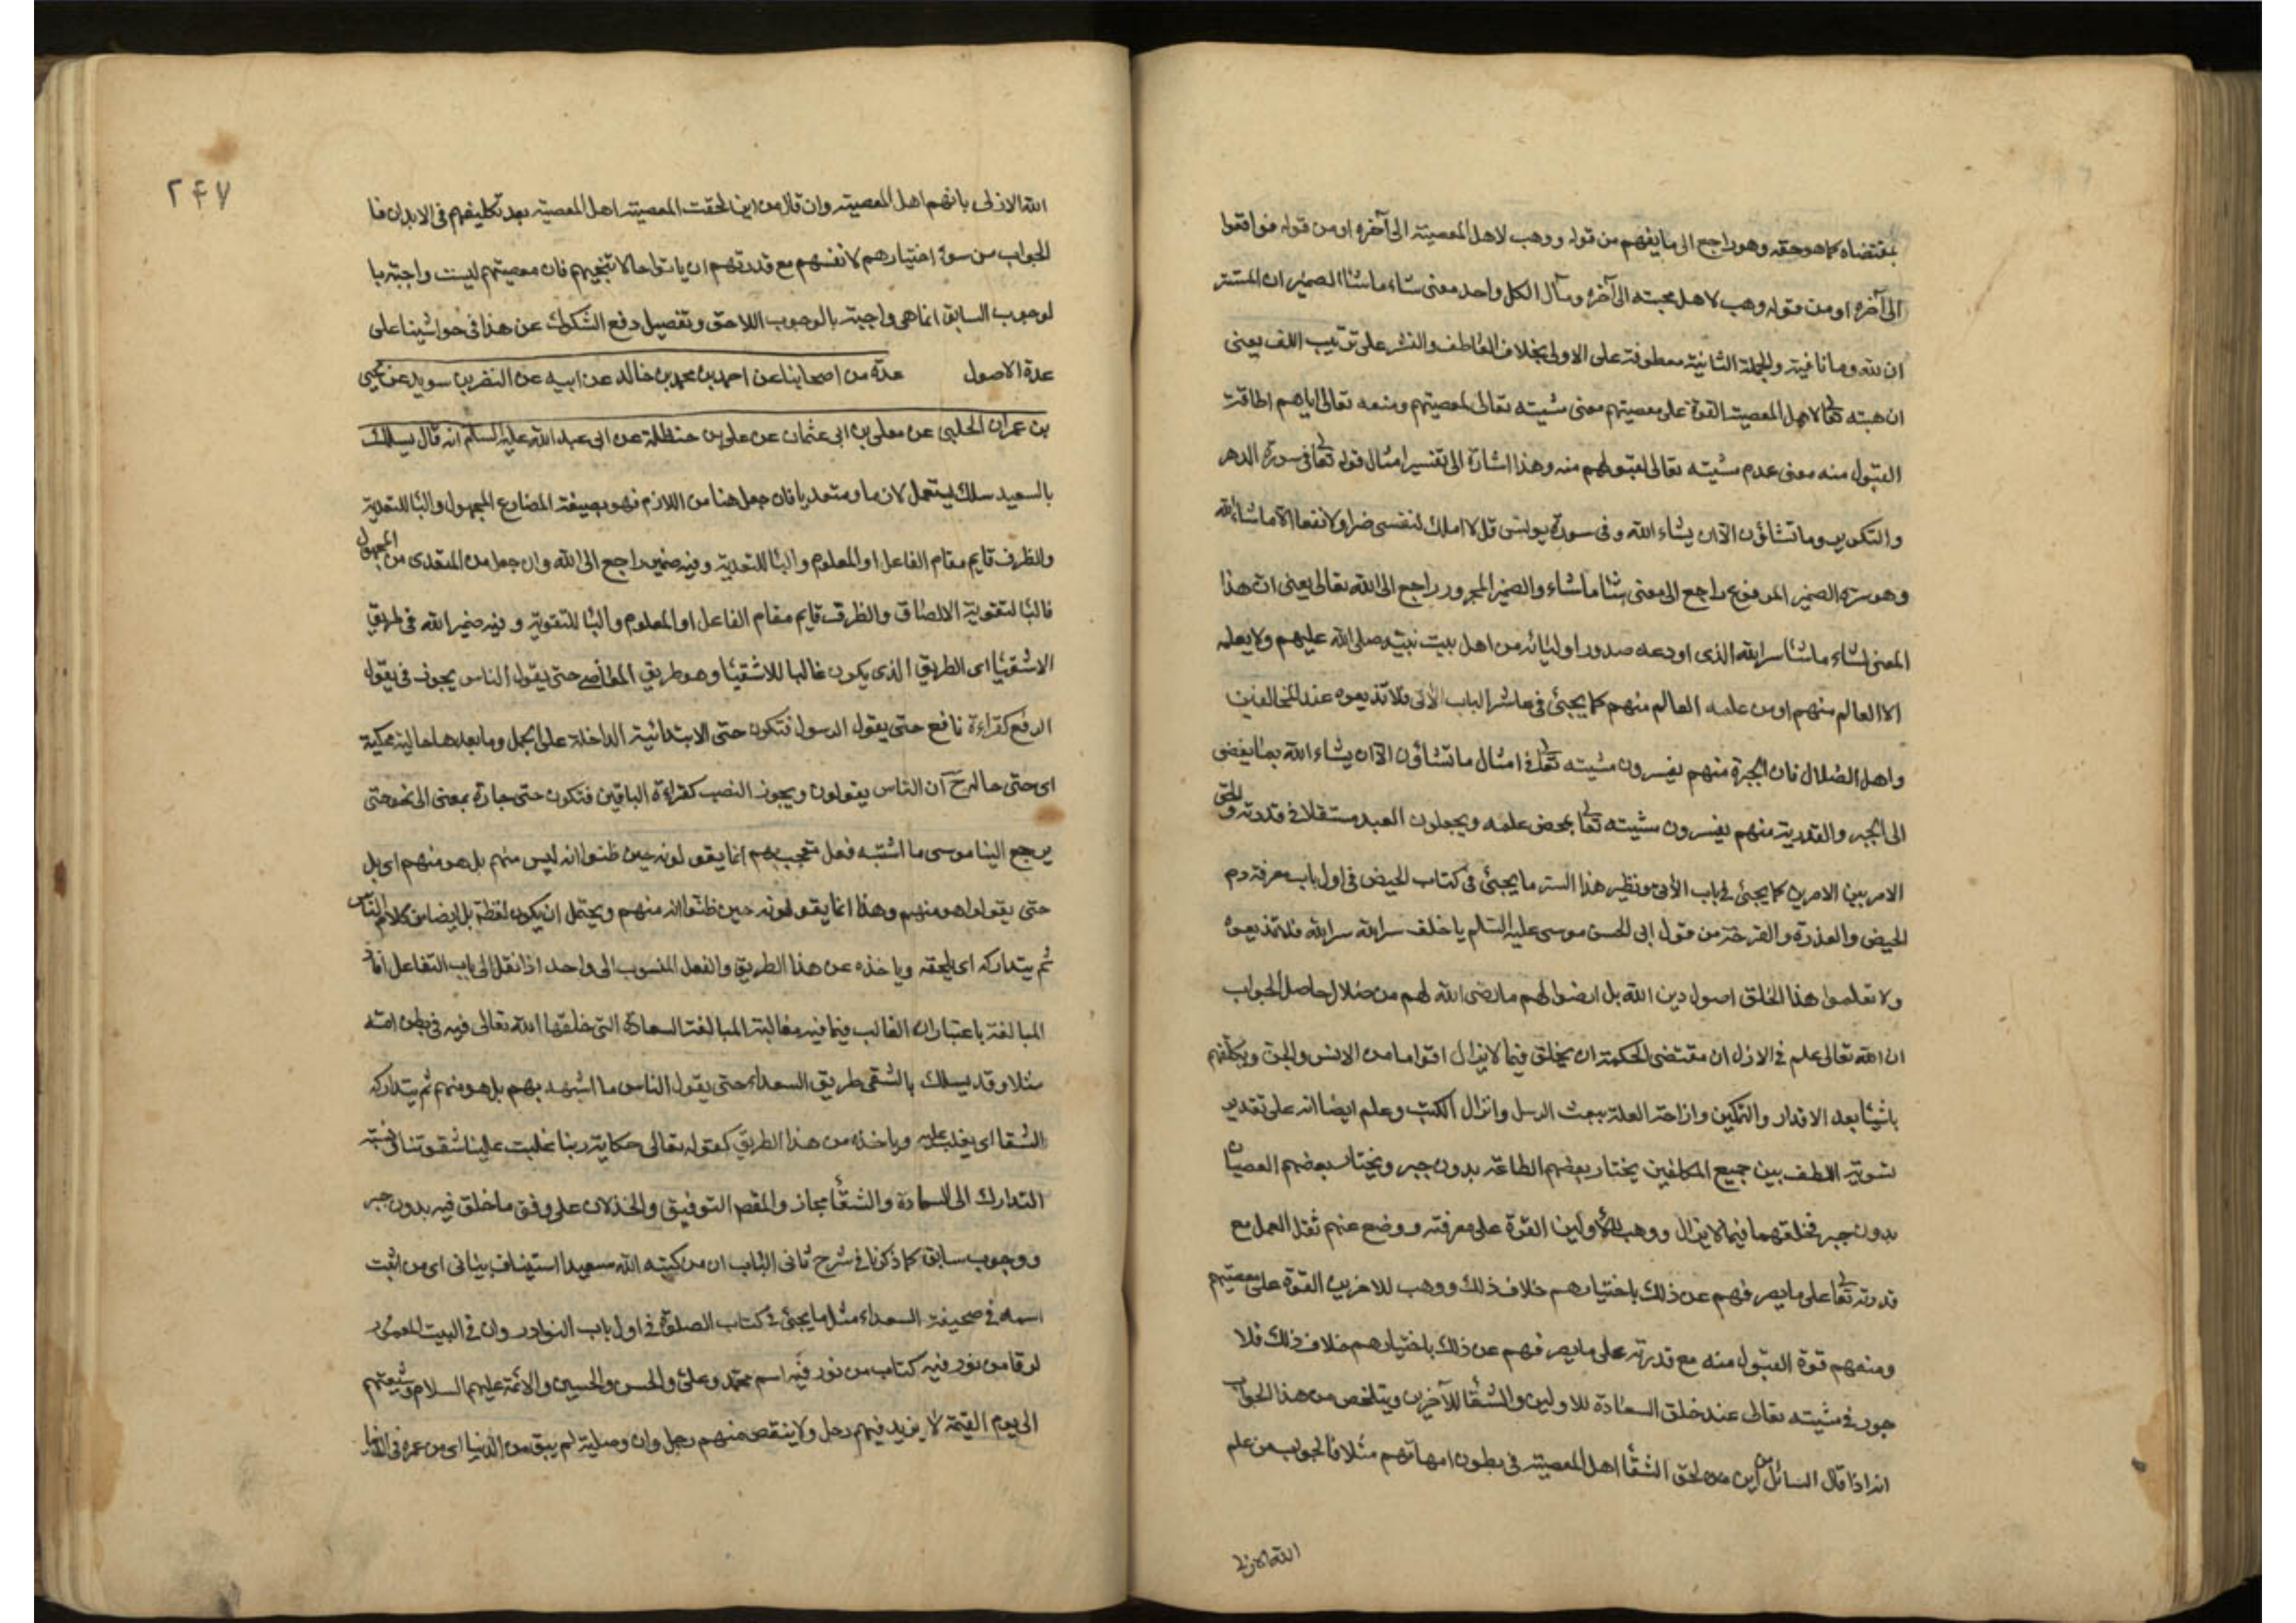 بمقتضاه كما هو حقه وهو راجع الى ما يفهم من قوله ووهب لاهل المعصية الى آخره او من قوله فوافقوا
الى آخره او من قوله وهب لاهل محبته الى آخره ومآل الكل واحد معنى شاء ما شاء الضمير ان المستتر
ان لله وما نافية والجملة الثانية معطوفة على الاولى بخلاف العاطف والنشر على ترتيب اللف يعنى
ان هبته تعالى لاهل المعصية القوة على معصيتهم معنى مشيته تعالى لمعصيتهم ومنعه تعالى اياهم اطاقة
القبول منه معنى عدم مشيته تعالى لقبولهم منه وهذا اشارة الى تفسير امثال قوله تعالى فى سورة الدهر
والتكوير وما تشاؤن الا ان يشاء الله وفى سورة يونس قل لا املك لنفسى ضرا ولا نفعا الا ما شاء الله
وهو سره الضمير المرفوع راجع الى معنى شاء ما شاء والضمير المجرور راجع الى الله تعالى يعنى ان هذا
المعنى لشاء ما شاء سر الله الذى اودعه صدور اوليائه من اهل بيت نبيه صلى الله عليهم ولا يعلمه
الا العالم منهم او من علمه العالم منهم كما يجئ فى عاشر الباب الآتى فلا تذيعوه عند المخالفين
واهل الضلال فان المجبرة منهم يفسرون مشيته تعالى فى امثال ما تشاؤن الا ان يشاء الله بما يفضى
الى الجبر والقدرية منهم يفسرون مشيته تعالى بمحض علمه ويجعلون العبد مستقلا فى قدرته والحق
الامر بين الامرين كما يجئ فى باب الآتى ونظير هذا الستر ما يجئ فى كتاب الحيض فى اول باب معرفة دم
الحيض والعذرة والقرحة من قول ابى الحسن موسى عليه السلام يا خلف سر الله سر الله فلا تذيعوه
ولا تعلموا هذا الخلق اصول دين الله بل ارضوا لهم ما رضى الله لهم من ضلال حاصل الجواب
ان الله تعالى علم فى الازل ان مقتضى الحكمة ان يخلق فيما لا يزال اقواما من الانس والجن ويكلفهم
باشيا بعد الاقدار والتمكين وازاحة العلة ببعث الرسل وانزال الكتب وعلم ايضا انه على تقدير
تسوية اللطف بين جميع المكلفين يختار بعضهم الطاعة بدون جبر ويختار بعضهم العصيان
بدون جبر فخلقهما فيما لا يزال ووهب للاولين القوة على معرفته ووضع عنهم ثقل العمل مع
قدرته تعالى على ما يصرفهم عن ذلك باختيارهم خلاف ذلك ووهب للاخرين القوة على معصيتهم
ومنعهم قوة القبول منه مع قدرته على ما يصرفهم عن ذلك باختيارهم خلاف ذلك فلا
جور فى مشيته تعالى عند خلق السعادة للاولين والشقا للآخرين ويتلخص من هذا الجواب
انه اذا قال السائل من اين لحق الشقا اهل المعصية فى بطون امهاتهم مثلا فالجواب من علم
الله الازلى
٢٤٧
الله الازلى بانهم اهل المعصية وان قال من اين لحقت المعصية اهل المعصية بعد تكليفهم فى الابدان فا
لجواب من سوء اختيارهم لانفسهم مع قدرتهم ان ياتوا حالا تنجيهم فان معصيتهم ليست واجبة با
لوجوب السابق انما هى واجبة بالوجوب اللاحق وتفصيل دفع الشكوك عن هذا فى حواشينا على
عدة الاصول عدة من اصحابنا عن احمد بن محمد بن خالد عن ابيه عن النضر بن سويد عن يحيى
بن عمران الحلبى عن معلى بن ابى عثمان عن على بن حنظلة عن ابى عبد الله عليه السلام انه قال يسلك
بالسعيد سلك يستعمل لازما ومتعديا فان جعل هنا من اللازم فهو بصيغة المضارع المجهول والبا للتعدية
والظرف قايم مقام الفاعل او المعلوم والبا للتعدية وفيه ضمير راجع الى الله وان جعل من المتعدى من المجهول
فالبا لتقوية الالصاق والظرف قايم مقام الفاعل او المعلوم والبا للتقوية وفيه ضمير الله فى طريق
الاشقيا اى الطريق الذى يكون غالبا للاشقيا وهو طريق المعاصى حتى يقول الناس يجوز فى يقول
الرفع كقراءة نافع حتى يقول الرسول فتكون حتى الابتدائية الداخلة على الجمل وما بعدها حالية محكية
اى حتى حاله ح ان الناس يقولون ويجوز النصب كقراءة الباقين فتكون حتى جارة بمعنى الى نحو حتى
يرجع الينا موسى ما اشبهه فعل تعجب بهم انما يقولونه حين ظنوا انه ليس منهم بل هو منهم اى بل
حتى يقولوا هو منهم وهذا انما يقولونه حين ظنوا انه منهم ويحتمل ان يكون لفظة بل ايضا من كلام الناس
ثم يتداركه اى يلحقه وياخذه عن هذا الطريق والفعل المنسوب الى واحد اذا نقل الى باب التفاعل افاد
المبالغة باعتبار ان الغالب فيما فيه مغالبة المبالغة السعادة التى خلقها الله تعالى فيه فى بطن امه
مثلا وقد يسلك بالشقى طريق السعداء حتى يقول الناس ما اشبهه بهم بل هو منهم ثم يتداركه
الشقا اى يغلب عليه وياخذه من هذا الطريق كقوله تعالى حكاية ربنا غلبت علينا شقوتنا نسبة
التدارك الى السعادة والشقا مجاز والمقصد التوفيق والخذلان على وفق ما خلق فيه بدون جبر
ووجوب سابق كما ذكرنا فى شرح ثانى الباب ان من كتبه الله سعيدا استيناف بيانى اى من اثبت
اسمه فى صحيفة السعداء مثل ما يجئ فى كتاب الصلوة فى اول باب النوادر وان فى البيت المعمور
لرقا من نور فيه كتاب من نور فيه اسم محمد وعلى والحسن والحسين والائمة عليهم السلام وشيعتهم
الى يوم القيمة لا يزيد فيهم رجل ولا ينقص منهم رجل وان وصلية لم يبق من الدنيا اى من عمره فى الدنيا